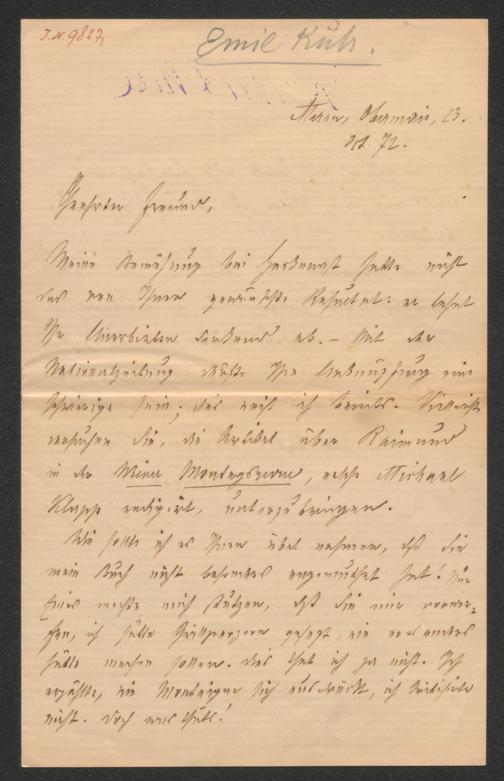 I.N. 9827
Emil Kuh.
Meran, Obermais, 23.
Oct. 72.
Geehrter Freund,
Meine Bemühung bei hatte nicht
das von Ihnen gewünschte Resultat: er lehnt
Ihr Anerbieten dankend ab. – Mit der
Nationalzeitung dürfte Ihre eine
schwierige sein; das weiß ich bereits. Vielleicht
versuchen Sie, die Artikel über Raimund
in der Wiener Montagsrevue, welche Michael
Klapp redigirt, unterzubringen.
Wie sollte ich es Ihnen übel nehmen, daß Sie
mein Buch nicht besonders angemuthet hat! Nur
Eines machte mich stutzen, daß Sie mir vorwer-
fen, ich hätte Grillparzern gesagt, wie er es anders
hätte machen sollen. Das that ich ja nicht. Ich
erzählte, wie sich ausdrückt, ich kritisirte
nicht. Doch was thuts!